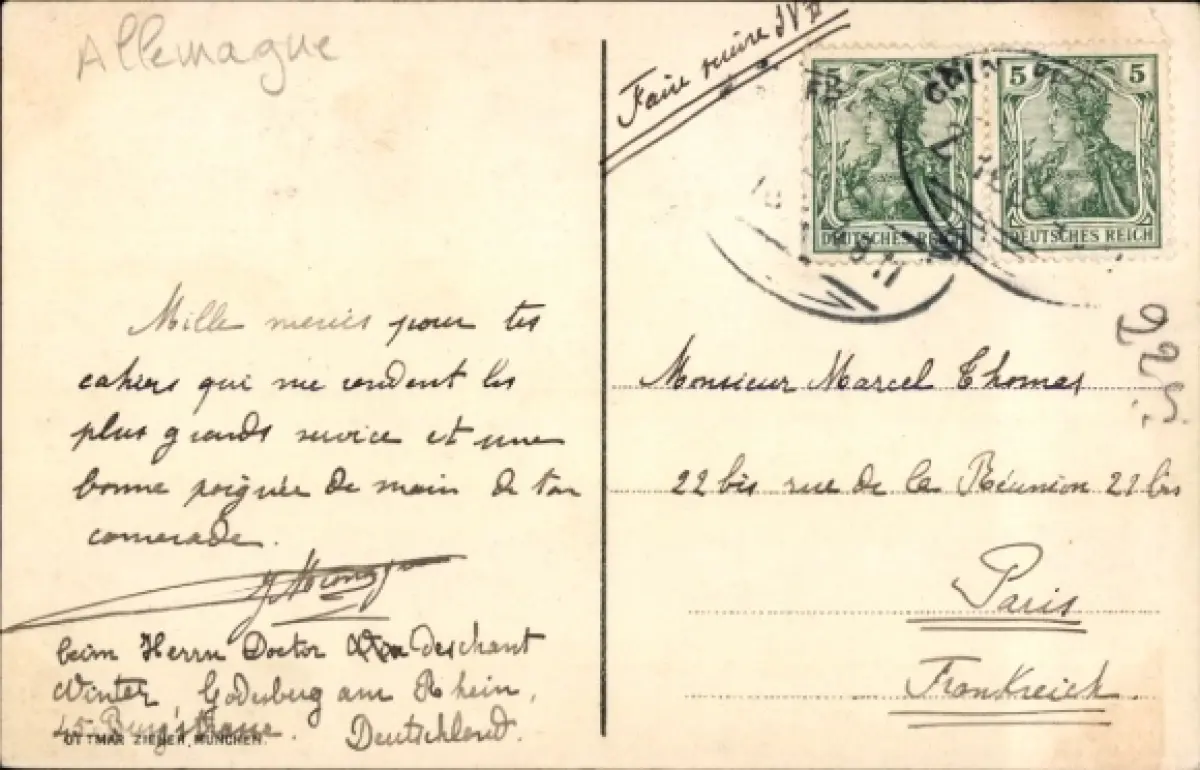 Allemagne
Mille mercis pour tes
cahiers qui me rendent les
plus grands service et une
bonne poignée de main de ton
camarade.
beim Herrn Doctor deschant
Winter, Godesberg am Rhein,
45 Burgstrasse. Deutschland.
OTTMAR ZIEHER, MÜNCHEN.
Faire suivre SVP
5
5 5
DEUTSCHES REICH
DEUTSCHES REICH
Monsieur Marcel Thomas
22 bis rue de la Réunion 22 bis
Paris
Frankreich.